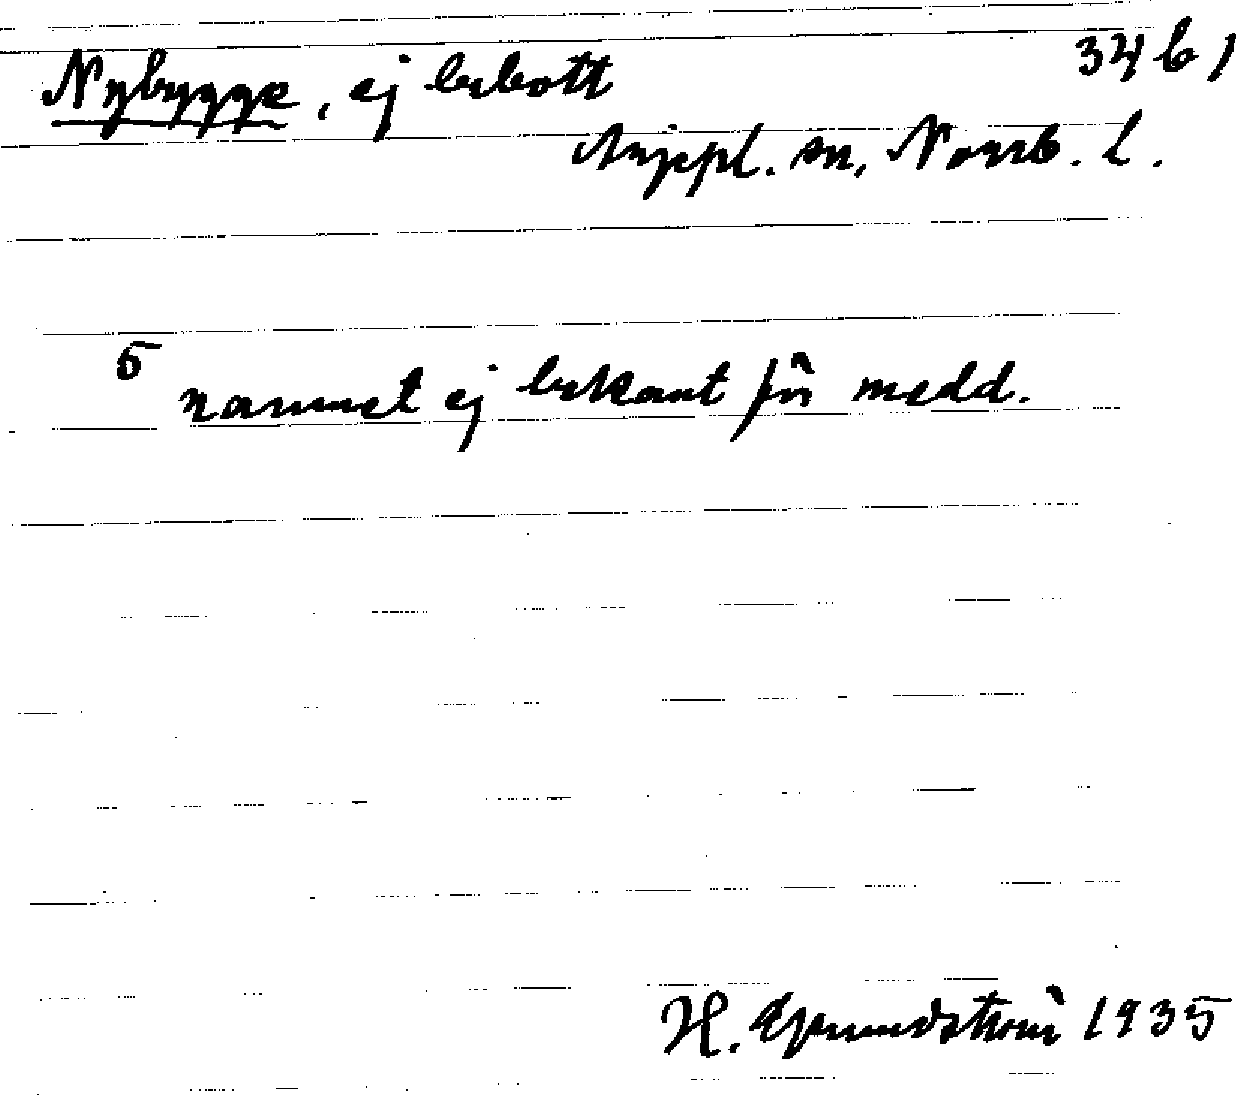 Nybygge, ej bebott 34 b 1
Arjepl. sn, Norrb. l.
5
namnet ej bekant för medd.
H. Grundström 1935